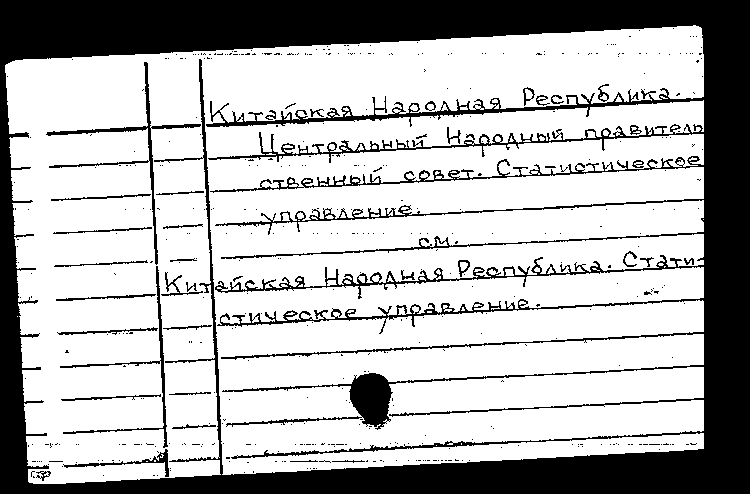 Китайская Народная Республика.
Центральный Народный правитель
ственный совет. Статистическое
управление.
см.
Китайская Народная Республика. Стати-
стическое управление.